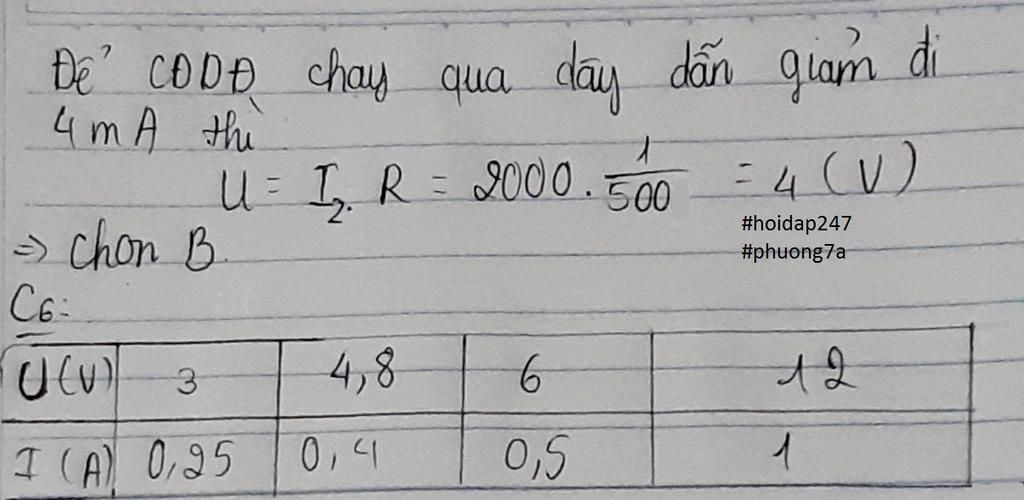 Để CĐDĐ chay qua dây dẫn giảm đi
4 mA thì
U = I₂. R = 2000 . 1/500 = 4 (V)
#hoidap247
#phuong7a
=> Chon B.
C6:
U(V) 3 4,8 6 12
I (A) 0,25 0,4 0,5 1